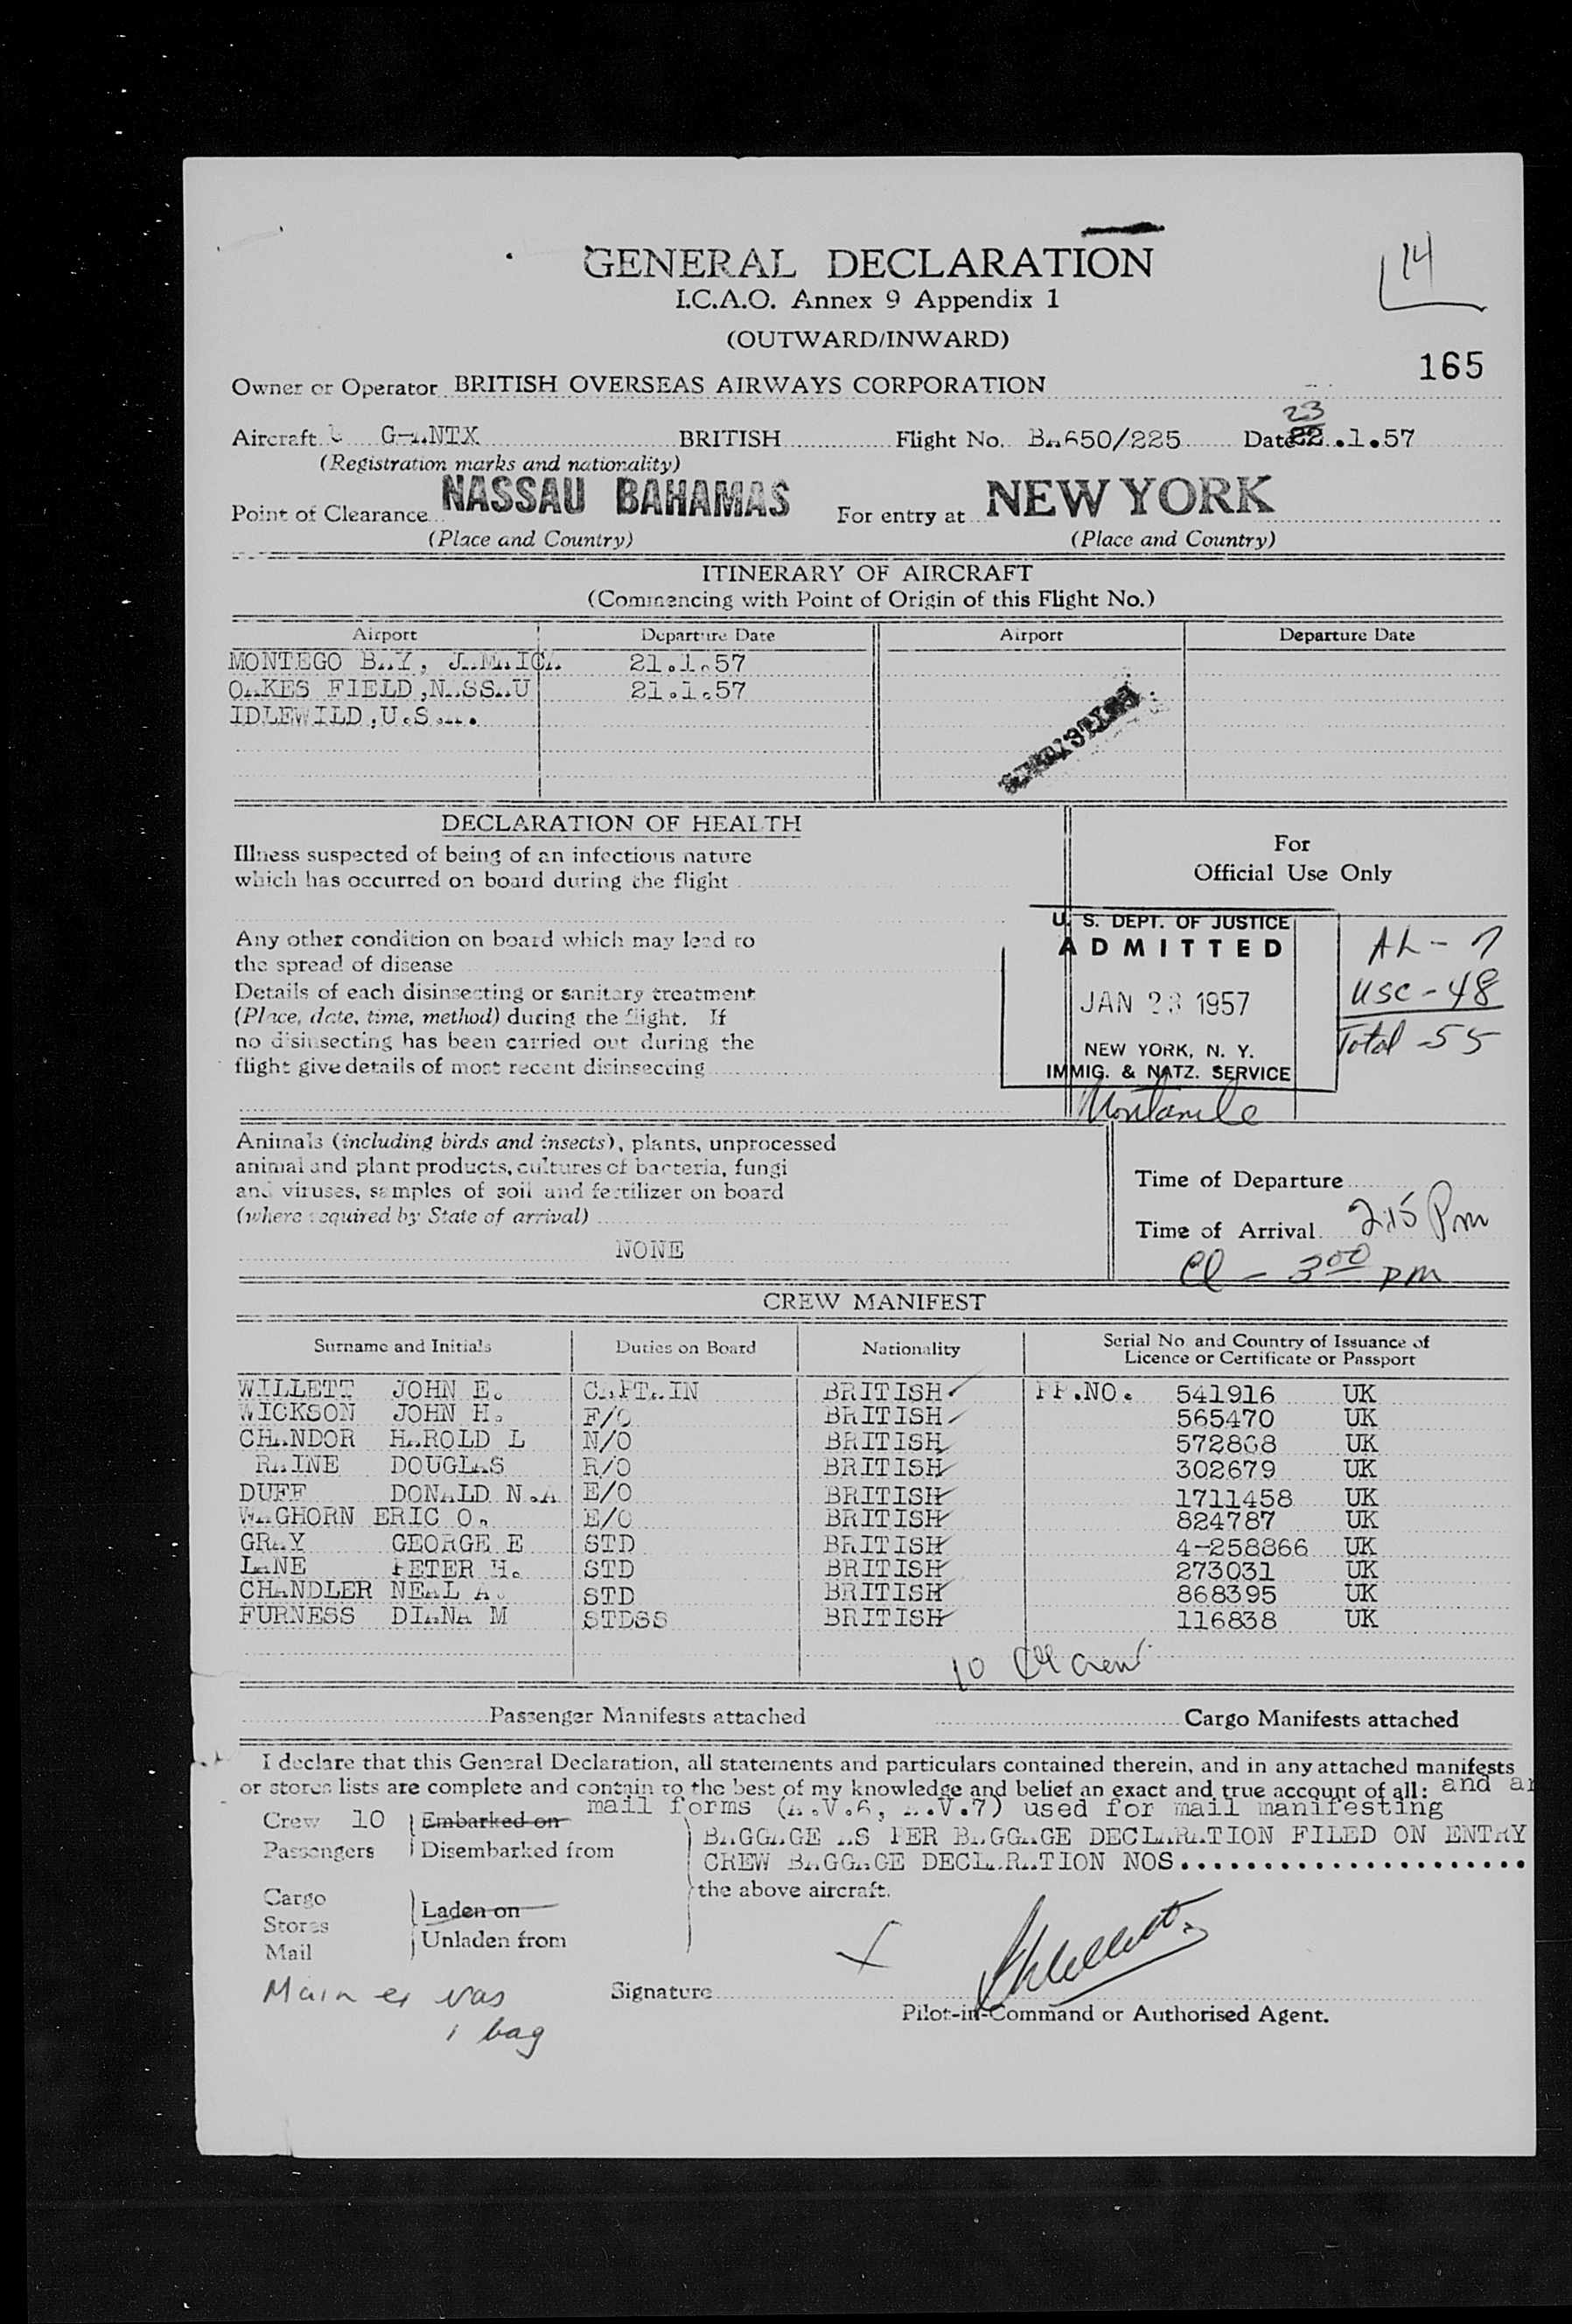 14
GENERAL DECLARATION
I.C.A.O. Annex 9 Appendix 1
(OUTWARD/INWARD)
165
Owner or Operator BRITISH OVERSEAS AIRWAYS CORPORATION
23
Aircraft G-ANTX BRITISH Flight No. BA650/225 Date 22.1.57
(Registration marks and nationality)
Point of Clearance NASSAU BAHAMAS For entry at NEW YORK
(Place and Country) (Place and Country)
ITINERARY OF AIRCRAFT
(Commencing with Point of Origin of this Flight No.)
Airport Departure Date Airport Departure Date
MONTEGO BAY, JAMAICA 21.1.57
OAKES FIELD,NASSAU 21.1.57
IDLEWILD,U.S.A.
DECLARATION OF HEALTH
For
Official Use Only
Illness suspected of being of an infectious nature
which has occurred on board during the flight
Any other condition on board which may lead to
the spread of disease
Details of each disinsecting or sanitary treatment
(Place, date, time, method) during the flight. If
no disinsecting has been carried out during the
flight give details of most recent disinsecting
U. S. DEPT. OF JUSTICE
ADMITTED
JAN 23 1957
NEW YORK, N. Y.
IMMIG. & NATZ. SERVICE
AL - 7
USC - 48
Total - 55
Animals (including birds and insects), plants, unprocessed
animal and plant products, cultures of bacteria, fungi
and viruses, samples of soil and fertilizer on board
(where required by State of arrival)
NONE
Time of Departure
Time of Arrival 2.15 Pm
Cl - 3 00 pm
CREW MANIFEST
Surname and Initials Duties on Board Nationality Serial No. and Country of Issuance of
Licence or Certificate or Passport
WILLETT JOHN E. CAPTAIN BRITISH PP.NO. 541916 UK
WICKSON JOHN H. F/O BRITISH 565470 UK
CHANDOR HAROLD L N/O BRITISH 572868 UK
RAINE DOUGLAS R/O BRITISH 302679 UK
DUFF DONALD N.A E/O BRITISH 1711458 UK
WAGHORN ERIC O. E/O BRITISH 824787 UK
GRAY GEORGE E STD BRITISH 4-258866 UK
LANE PETER H. STD BRITISH 273031 UK
CHANDLER NEAL A. STD BRITISH 868395 UK
FURNESS DIANA M STDSS BRITISH 116838 UK
10 crew
Passenger Manifests attached Cargo Manifests attached
I declare that this General Declaration, all statements and particulars contained therein, and in any attached manifests
or stores lists are complete and contain to the best of my knowledge and belief an exact and true account of all: and
mail forms (A.V.6, A.V.7) used for mail manifesting
Crew 10 Embarked on
BAGGAGE AS PER BAGGAGE DECLARATION FILED ON ENTRY
Passengers Disembarked from
CREW BAGGAGE DECLARATION NOS......................
the above aircraft.
Cargo
Laden on
Stores
Unladen from
Mail
Signature
Pilot-in-Command or Authorised Agent.
1 bag